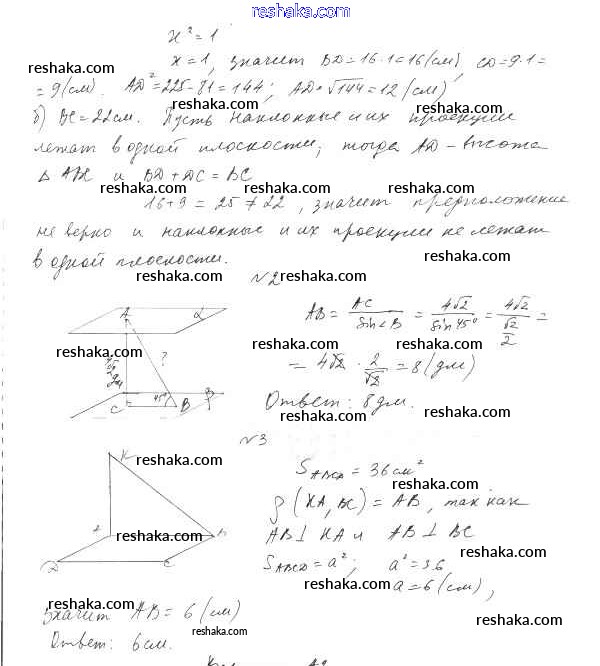 reshaka.com
x² = 1
x = 1, значит BD = 16·1 = 16 (см), CD = 9·1 =
reshaka.com reshaka.com reshaka.com
= 9 (см). AD² = 225 - 81 = 144; AD = √144 = 12 (см)
б) BC = 22 см. Пусть наклонные и их проекции
reshaka.com reshaka.com reshaka.com
лежат в одной плоскости, тогда AD - высота
Δ ABC и BD + DC = BC
reshaka.com reshaka.com
16 + 9 = 25 ≠ 22, значит предположение
не верно и наклонные и их проекции не лежат
reshaka.com reshaka.com reshaka.com
в одной плоскости.
reshaka.com reshaka.com
№2
A α
AB = AC / sin∠B = 4√2 / sin 45° = 4√2 / (√2/2) =
reshaka.com reshaka.com reshaka.com
4√2 дм ?
= 4√2 · 2/√2 = 8 (дм)
reshaka.com reshaka.com
C 45° B β
Ответ: 8 дм.
reshaka.com reshaka.com
№3
K
reshaka.com
S ABCD = 36 см²
reshaka.com
ρ (KA, BC) = AB, так как
reshaka.com reshaka.com
AB ⊥ KA и AB ⊥ BC
D C
S ABCD = a²; a² = 36
reshaka.com reshaka.com
a = 6 (см),
reshaka.com reshaka.com
Значит AB = 6 (см)
reshaka.com
Ответ: 6 см.
reshaka.com